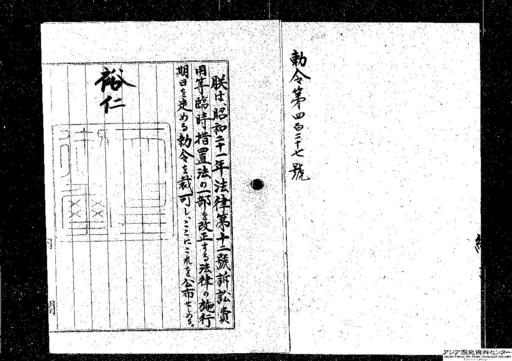 勅令第四百二十七號
朕は、昭和二十一年法律第十二號訴訟費
用等臨時措置法の一部を改正する法律の施行
期日を定める勅令を裁可し、ここにこれを公布せしめる。
裕仁
アジア歴史資料センター